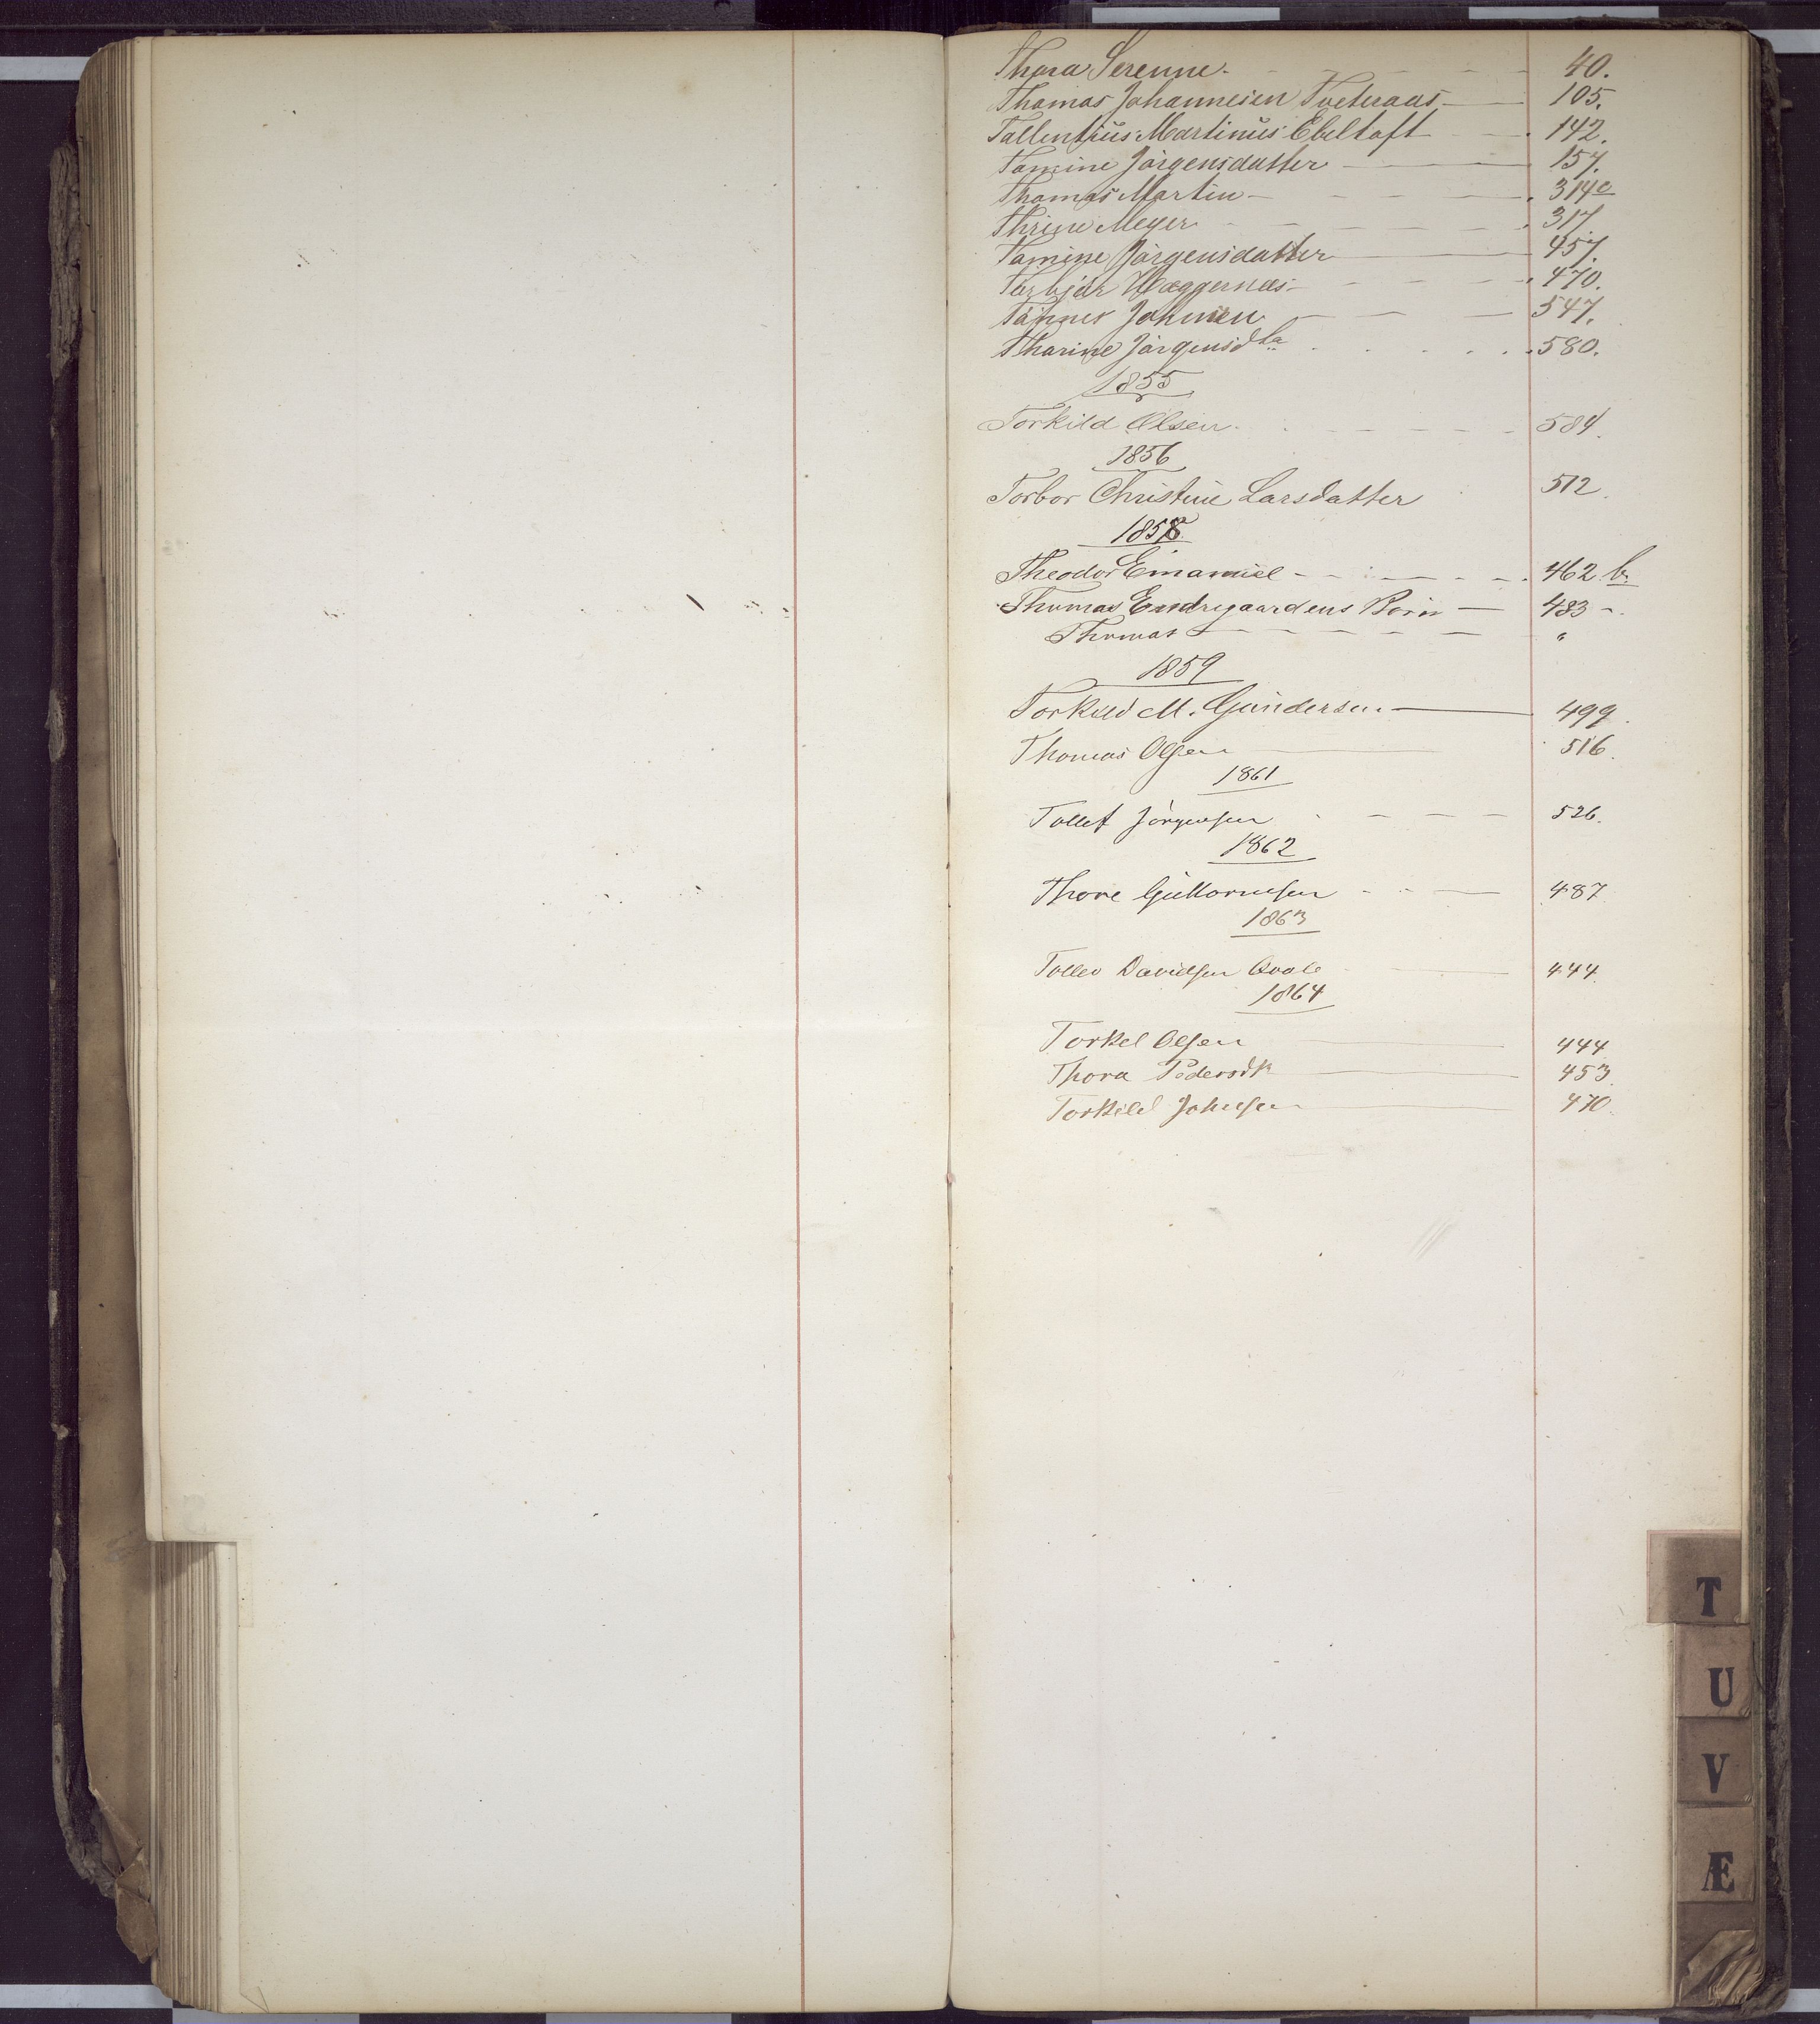 Thora Serenne. 40.
Thomas Johannesen Tveteraas 105.
Tallentius Martinus Ebeltoft 142.
Tomine Jörgensdatter 157.
Thomas Martin 314c
Thrine Meyer 317.
Tomine Jörgensdatter 457.
Hæggernæs 470.
Johnsen 547.
Tharine Jörgensdtr 580.
1855
Torkild Olsen. 584.
1856
Torbor Christine Larsdatter 512.
1858.
Theodor Emanuel 462 b.
Thomas Endregaardens Börn 483 -.
Thomas "
1859
Torkild M. Gundersen. 499.
Thomas Olsen 516.
1861
Tollef Jörgensen 526.
1862
Thore Guttormsen 487
1863
Tollev Davidsen Qvale 444.
1864
Torkel Olsen 444.
Thora Pedersdtr 453.
Torkild Johnsen 470.
T
U
V
Æ